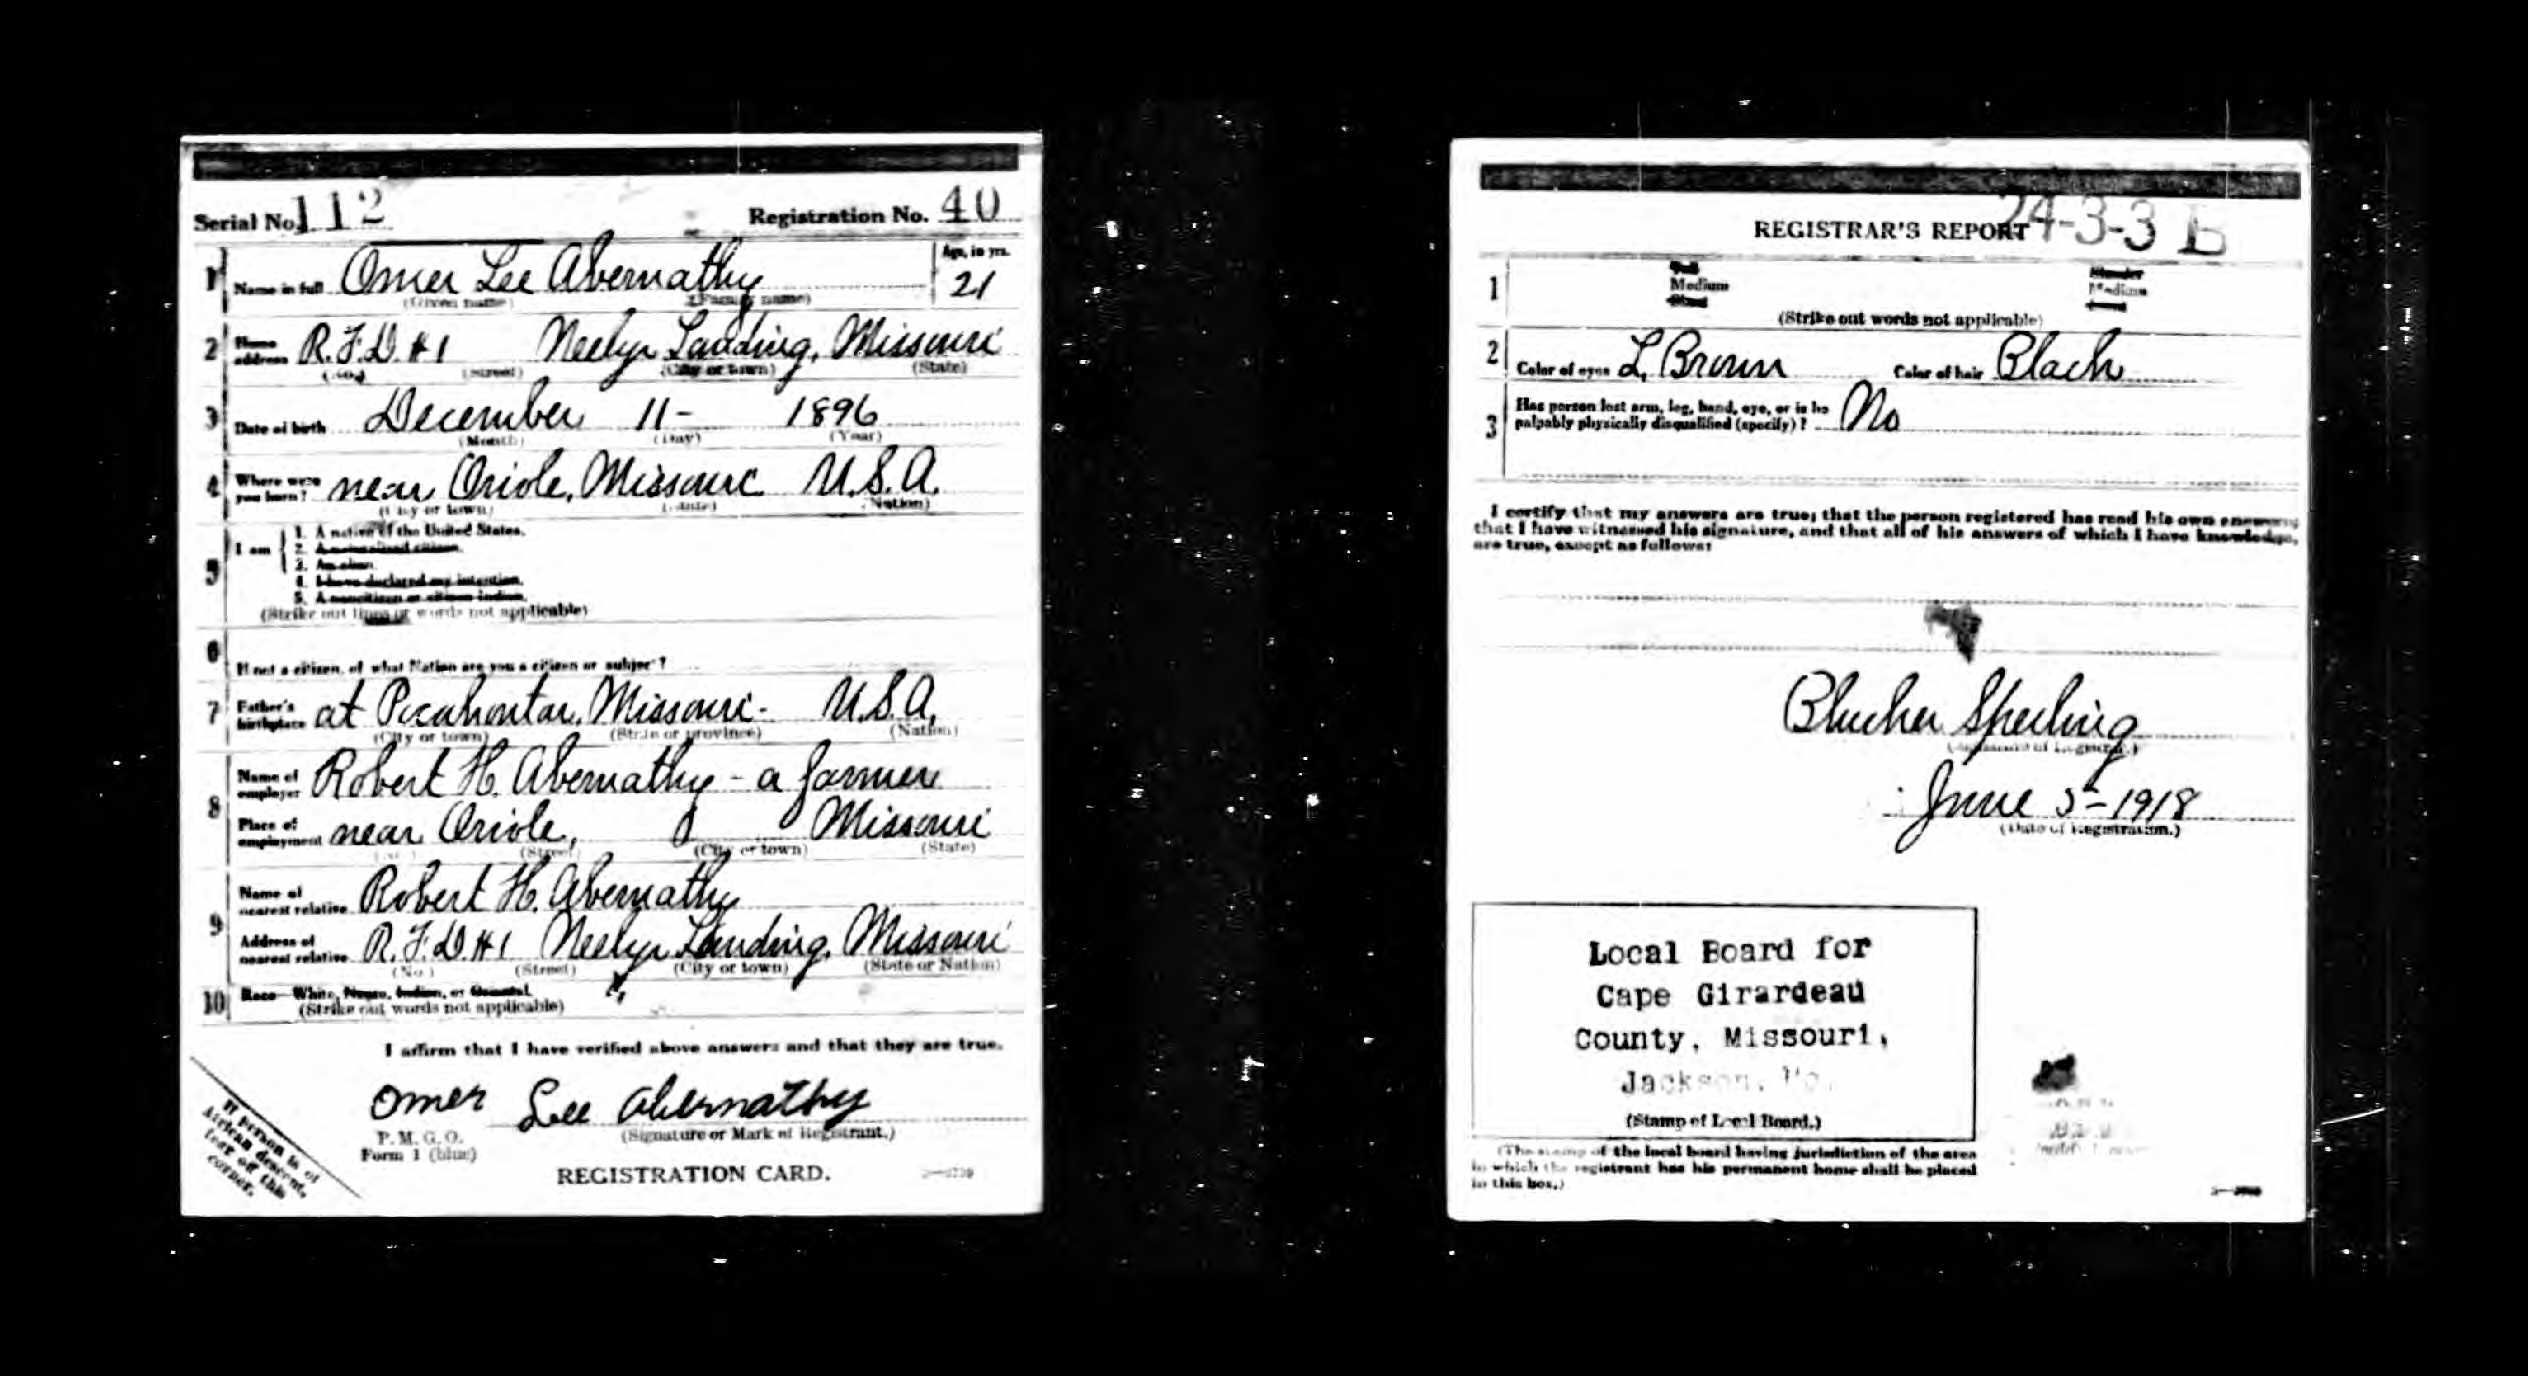 Serial No. 112 Registration No. 40
1 Name in full Omer Lee Abernathy Age, in yrs. 21
(Given name) (Family name)
2 Home address R.F.D. #1 Neelys Landing, Missouri
(No.) (Street) (City or town) (State)
3 Date of birth December 11- 1896
(Month) (Day) (Year)
4 Where were you born? near Oriole, Missouri U.S.A.
(City or town) (State) (Nation)
5 I am
1. A native of the United States.
2. A naturalized citizen.
3. An alien.
4. I have declared my intention.
5. A noncitizen or citizen Indian.
(Strike out lines or words not applicable)
6 If not a citizen, of what Nation are you a citizen or subject?
7 Father's birthplace at Pocahontas, Missouri- U.S.A.
(City or town) (State or province) (Nation)
8 Name of employer Robert H. Abernathy - a farmer
Place of employment near Oriole, Missouri
(Street) (City or town) (State)
9 Name of nearest relative Robert H. Abernathy
Address of nearest relative R.F.D. #1 Neelys Landing, Missouri
(No.) (Street) (City or town) (State or Nation)
10 Race—White, Negro, Indian, or Oriental.
(Strike out words not applicable)
I affirm that I have verified above answers and that they are true.
Omer Lee Abernathy
P. M. G. O. (Signature or Mark of Registrant.)
Form 1 (blue)
REGISTRATION CARD.
If person is of
African descent,
tear off this
corner.
REGISTRAR'S REPORT 24-3-3 B
1 Tall Slender
Medium Medium
Short Stout
(Strike out words not applicable)
2 Color of eyes L. Brown Color of hair Black
3 Has person lost arm, leg, hand, eye, or is he
palpably physically disqualified (specify)? No
I certify that my answers are true; that the person registered has read his own answers;
that I have witnessed his signature, and that all of his answers of which I have knowledge,
are true, except as follows:
Blucher Sperling
(Signature of Registrar.)
June 5-1918
(Date of Registration.)
Local Board for
Cape Girardeau
County, Missouri,
Jackson, Mo.
(Stamp of Local Board.)
(The stamp of the local board having jurisdiction of the area
in which the registrant has his permanent home shall be placed
in this box.)